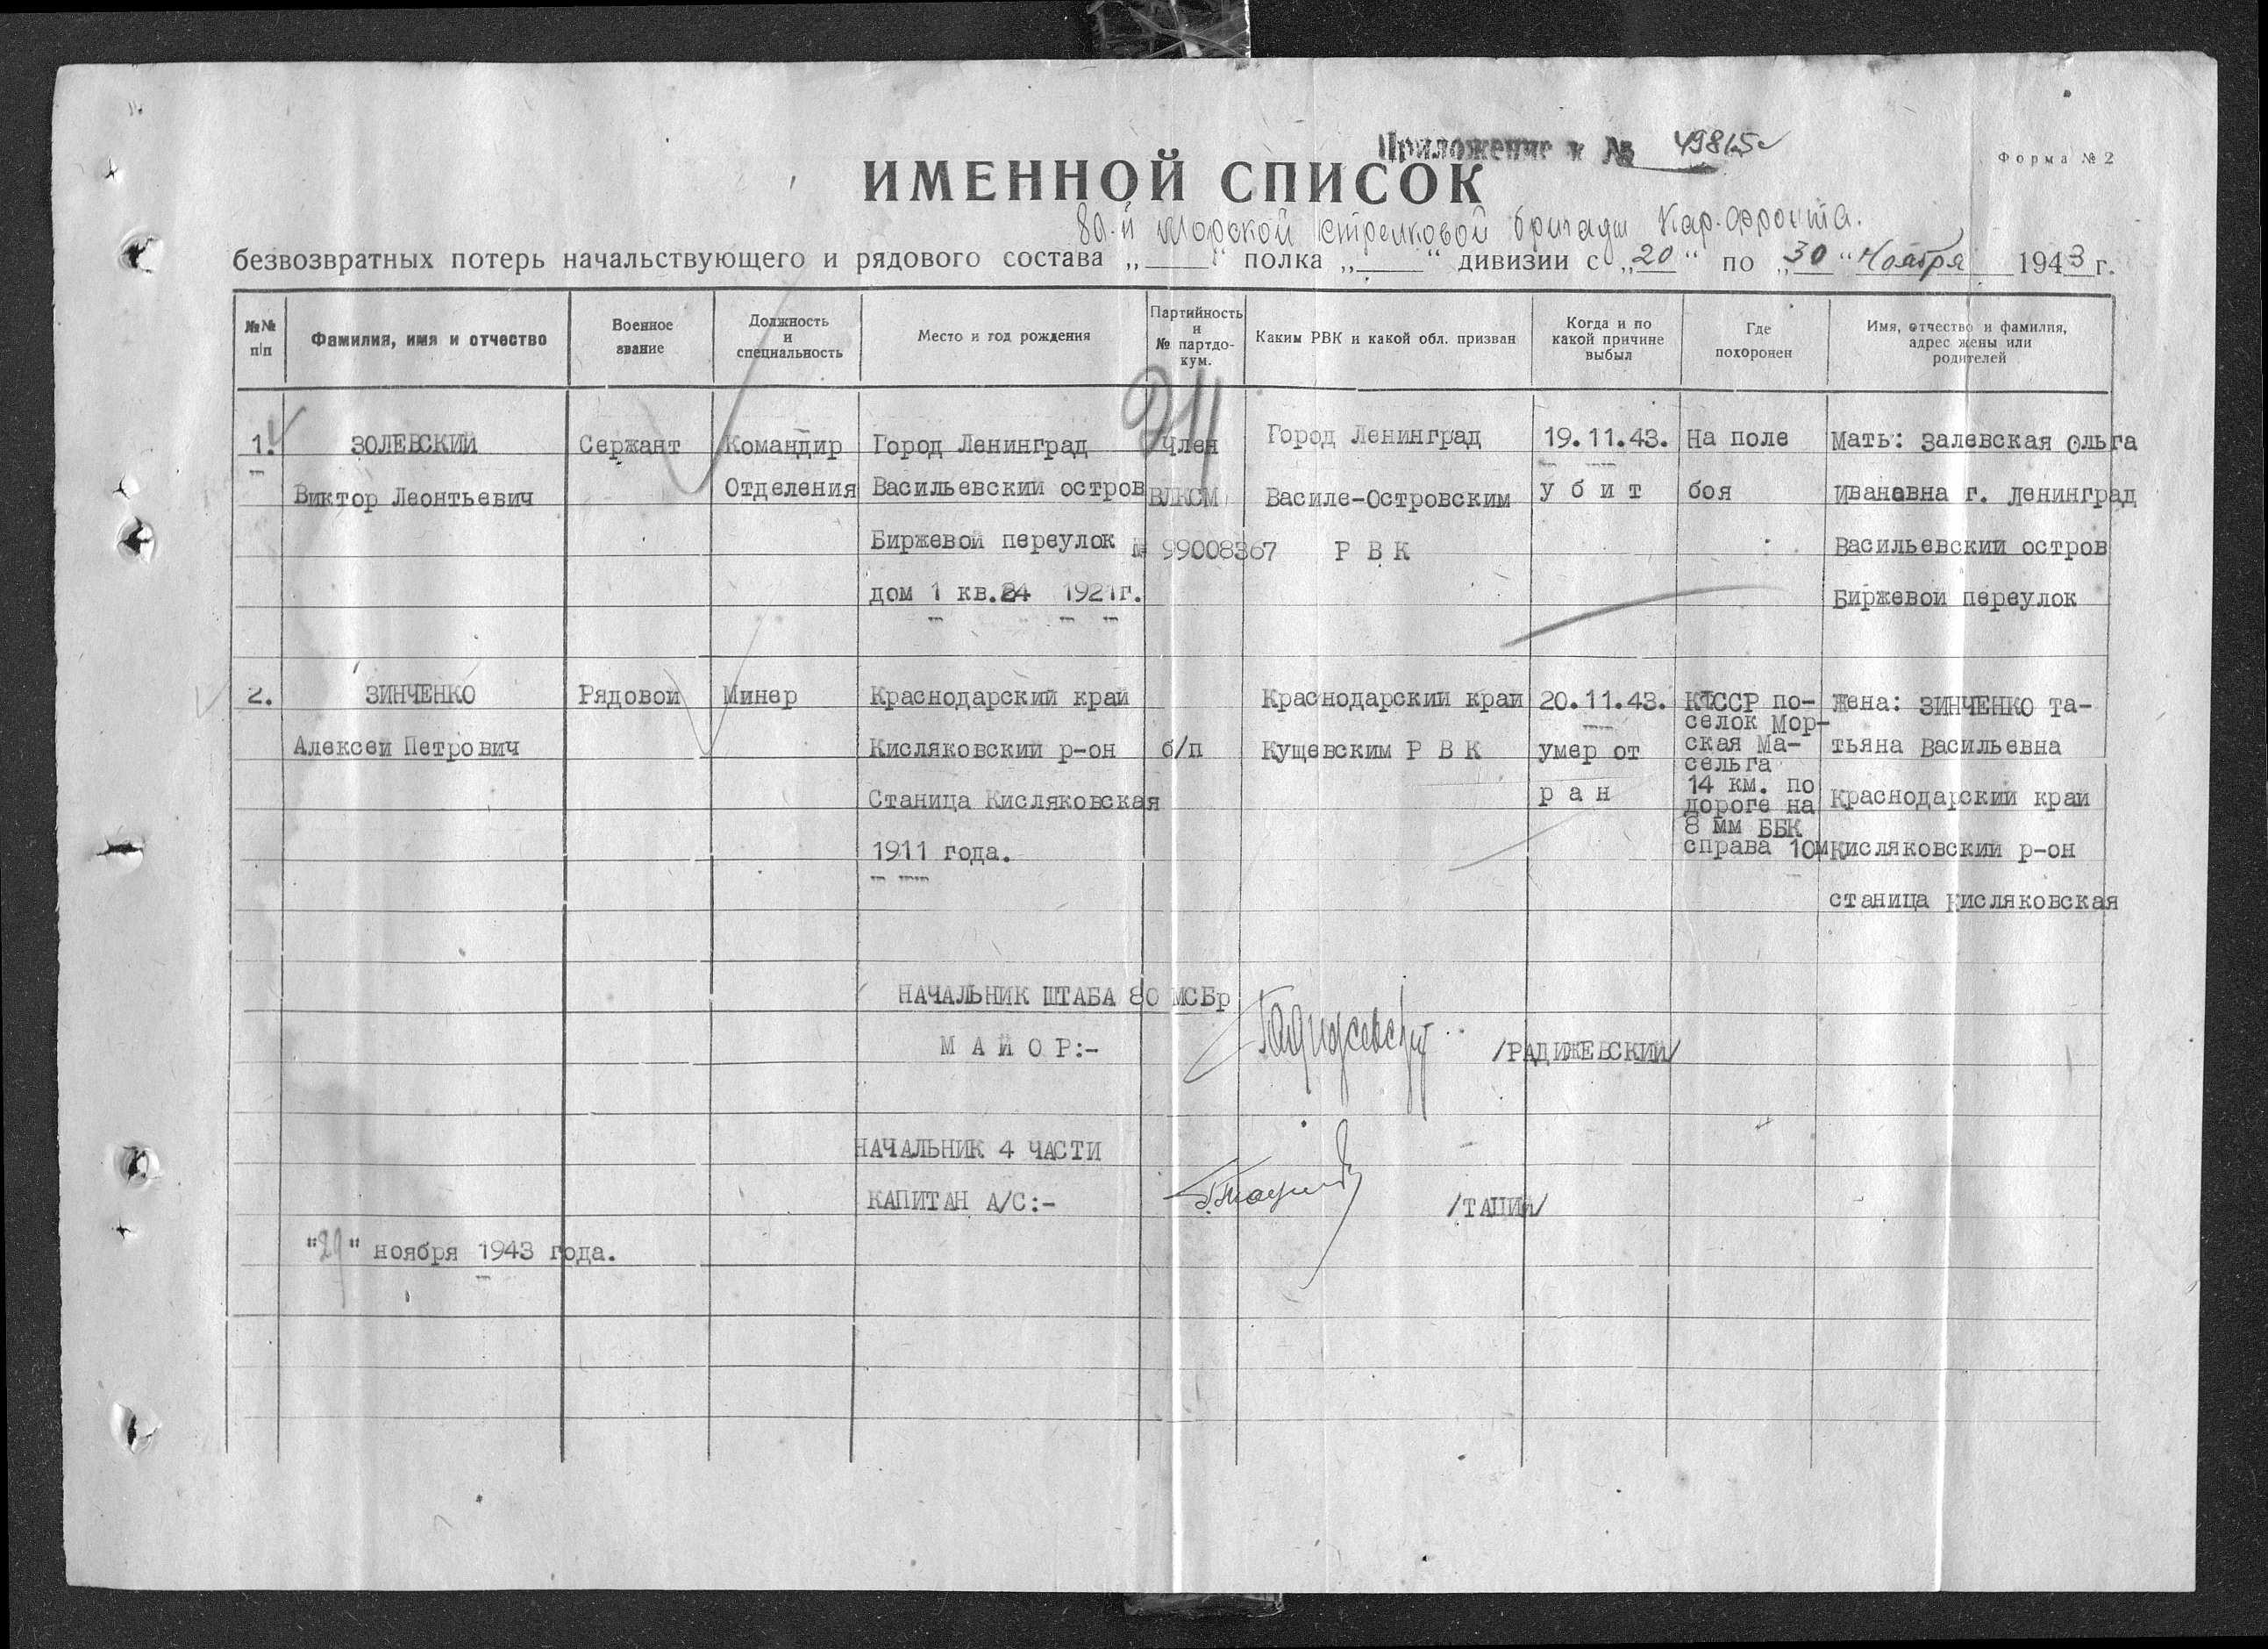 Приложение к № 49815с
Форма № 2
ИМЕННОЙ СПИСОК
80-й морской стрелковой бригады Кар. фронта.
безвозвратных потерь начальствующего и рядового состава „____“ полка „____“ дивизии с „20“ по „30“ Ноября 1943 г.
№№ п/п
Фамилия, имя и отчество
Военное звание
Должность и специальность
Место и год рождения
Партийность и № партдо-кум.
Каким РВК и какой обл. призван
Когда и по какой причине выбыл
Где похоронен
Имя, отчество и фамилия, адрес жены или родителей
1. ЗОЛЕВСКИЙ Сержант Командир Город Ленинград Член Город Ленинград 19.11.43. На поле Мать: Залевская Ольга
Виктор Леонтьевич Отделения Васильевский остров ВЛКСМ Василе-Островским у б и т боя Ивановна г. Ленинград
Биржевой переулок № 99008367 Р В К Васильевский остров
дом 1 кв.24 1921г. Биржевой переулок
2. ЗИНЧЕНКО Рядовой Минер Краснодарский край Краснодарский край 20.11.43. КФССР по- Жена: ЗИНЧЕНКО Та-
селок Мор-
Алексей Петрович Кисляковский р-он б/п Кущевским Р В К умер от ская Ма- тьяна Васильевна
сельга
Станица Кисляковская р а н 14 км. по Краснодарский край
дороге на
8 мм ББК
1911 года. справа 10м Кисляковский р-он
станица Кисляковская
НАЧАЛЬНИК ШТАБА 80 МСБр
М А Й О Р:- /РАДИЖЕВСКИЙ/
НАЧАЛЬНИК 4 ЧАСТИ
КАПИТАН А/С:- /ТАЦИЙ/
"29" ноября 1943 года.